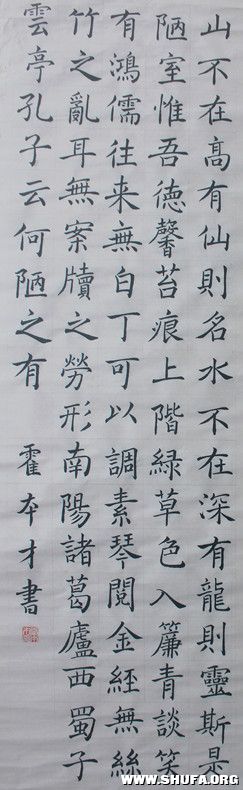 山不在高有仙則名水不在深有龍則靈斯是
陋室惟吾德馨苔痕上階綠草色入簾青談笑
有鴻儒往来無白丁可以調素琴閱金經無絲
竹之亂耳無案牘之勞形南陽諸葛廬西蜀子
雲亭孔子云何陋之有 霍夲才書
WWW.SHUFA.ORG